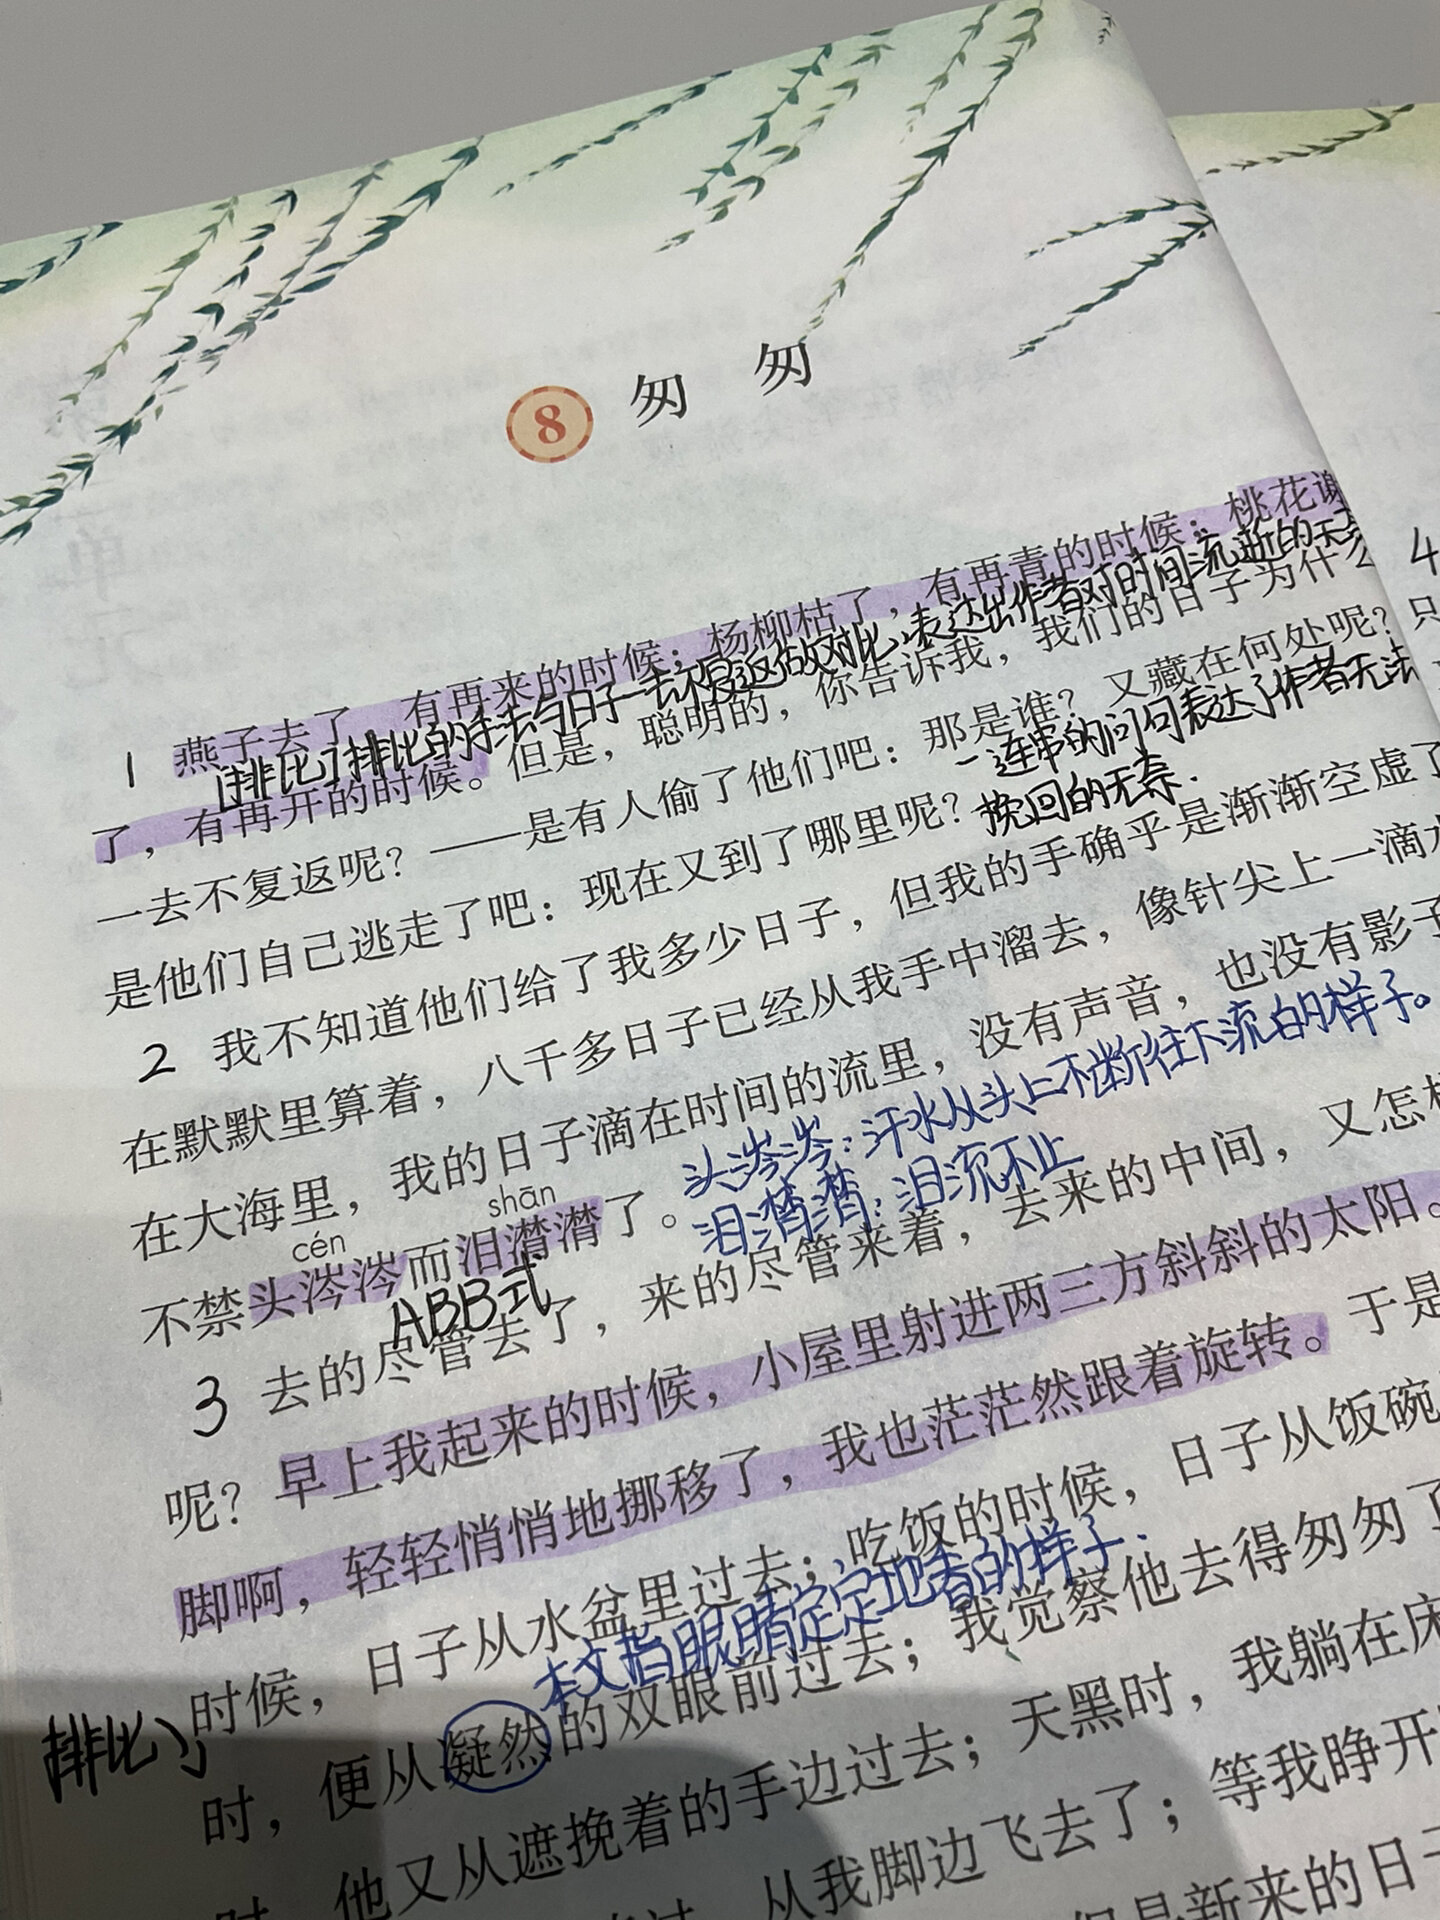 8 匆匆
1 燕子去了，有再来的时候；杨柳枯了，有再青的时候；桃花谢
[排比]排比的手法与日子一去不复返做对比，表达出作者对时间流逝的无
了，有再开的时候。但是，聪明的，你告诉我，我们的日子为什么
一连串的问句表达了作者无法
一去不复返呢？——是有人偷了他们吧：那是谁？又藏在何处呢？
挽回的无奈.
是他们自己逃走了吧：现在又到了哪里呢？
2 我不知道他们给了我多少日子，但我的手确乎是渐渐空虚了
在默默里算着，八千多日子已经从我手中溜去，像针尖上一滴水
在大海里，我的日子滴在时间的流里，没有声音，也没有影子
头涔涔：汗水从头上不断往下流的样子。
shān
泪潸潸：泪流不止
cén
不禁头涔涔而泪潸潸了。
ABB式
3 去的尽管去了，来的尽管来着，去来的中间，又怎样
呢？早上我起来的时候，小屋里射进两三方斜斜的太阳。
脚啊，轻轻悄悄地挪移了，我也茫茫然跟着旋转。于是
时候，日子从水盆里过去；吃饭的时候，日子从饭碗
本文指眼睛定定地看的样子.
排比
时，便从凝然的双眼前过去；我觉察他去得匆匆了
时，他又从遮挽着的手边过去；天黑时，我躺在床
从我脚边飞去了；等我睁开
但是新来的日子
4
只